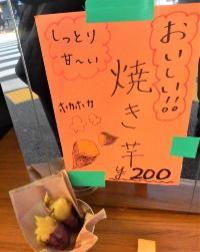 おいしい!!
しっとり
甘〜い
焼き芋
ホカホカ
¥200